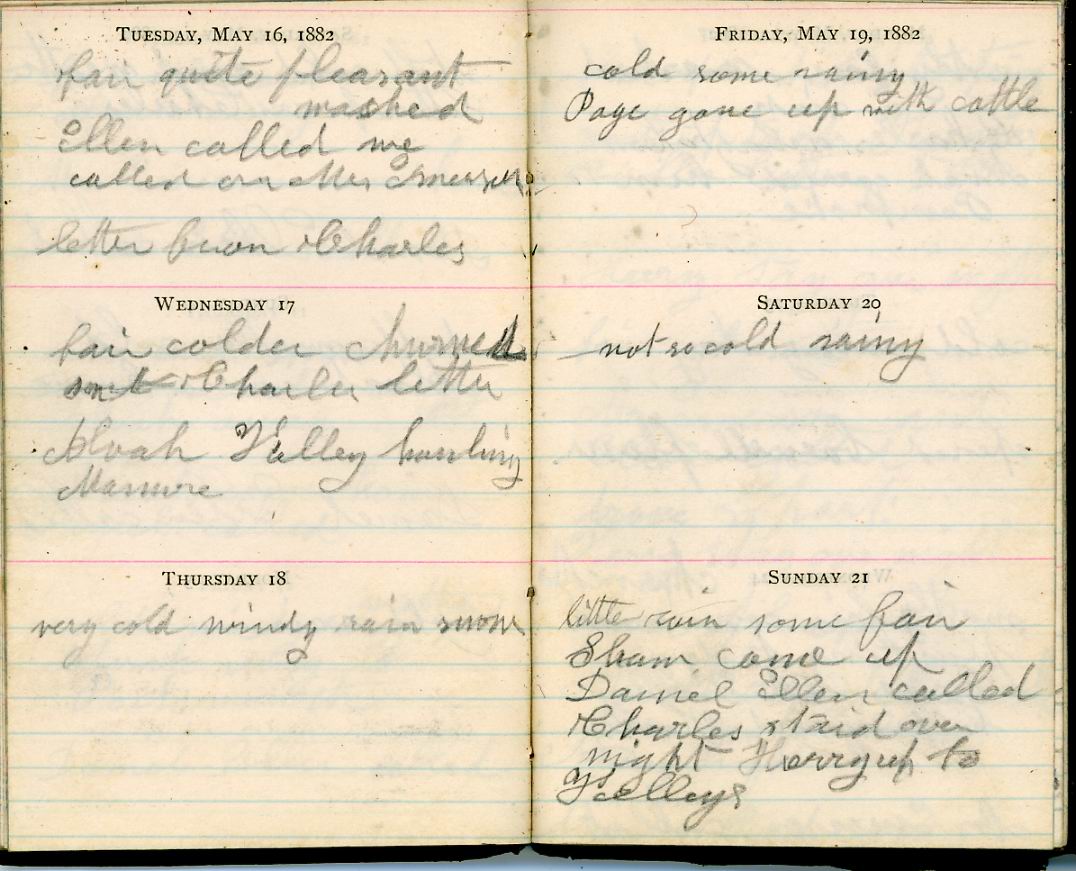 TUESDAY, MAY 16, 1882
fair quite pleasant
washed
Ellen called we
called on Mrs
letter from Charles
WEDNESDAY 17
fair colder churned
sent Charles letter
Noah Kelley hauling
Manure
THURSDAY 18
very cold windy rain snow
FRIDAY, MAY 19, 1882
cold some rainy
Page gone up with cattle
SATURDAY 20
not so cold rainy
SUNDAY 21
little rain some fair
Sham come up
Daniel Ellen called
Charles staid over
night Harry up to
Kelleys